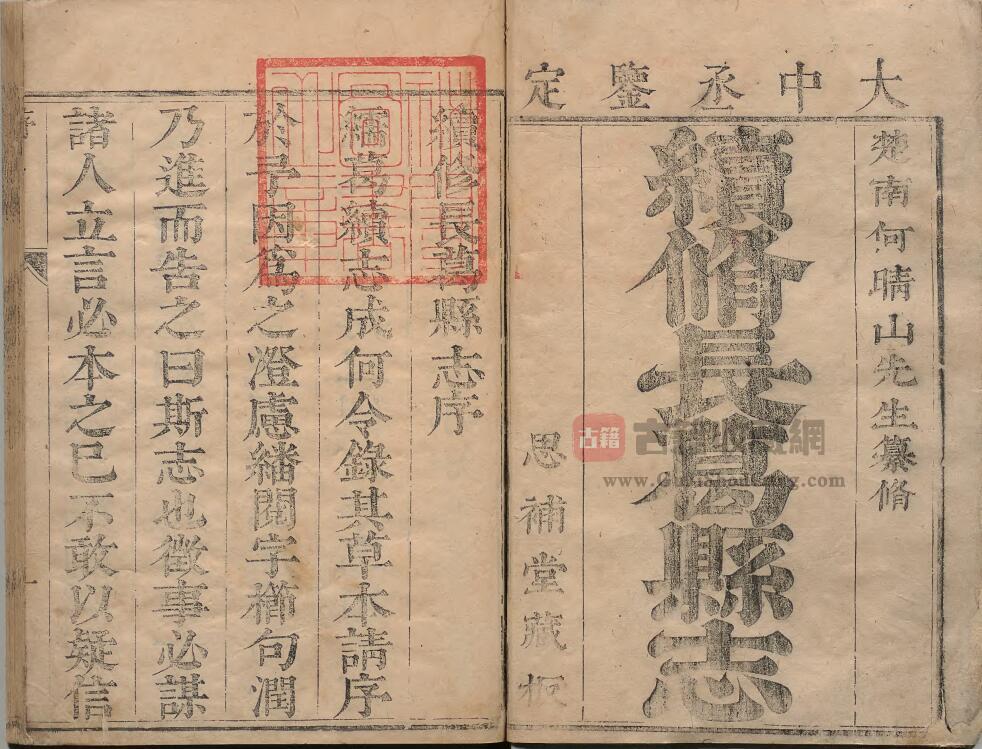 大中丞鑒定
楚南何晴山先生纂脩
續脩長葛縣志
思補堂藏板
續修長葛縣志序
繻葛續志成何令錄其草本請序
於予因為之澄慮繙閱字櫛句潤
乃進而告之曰斯志也徵事必謀
諸人立言必本之已不敢以疑信
古籍
www.